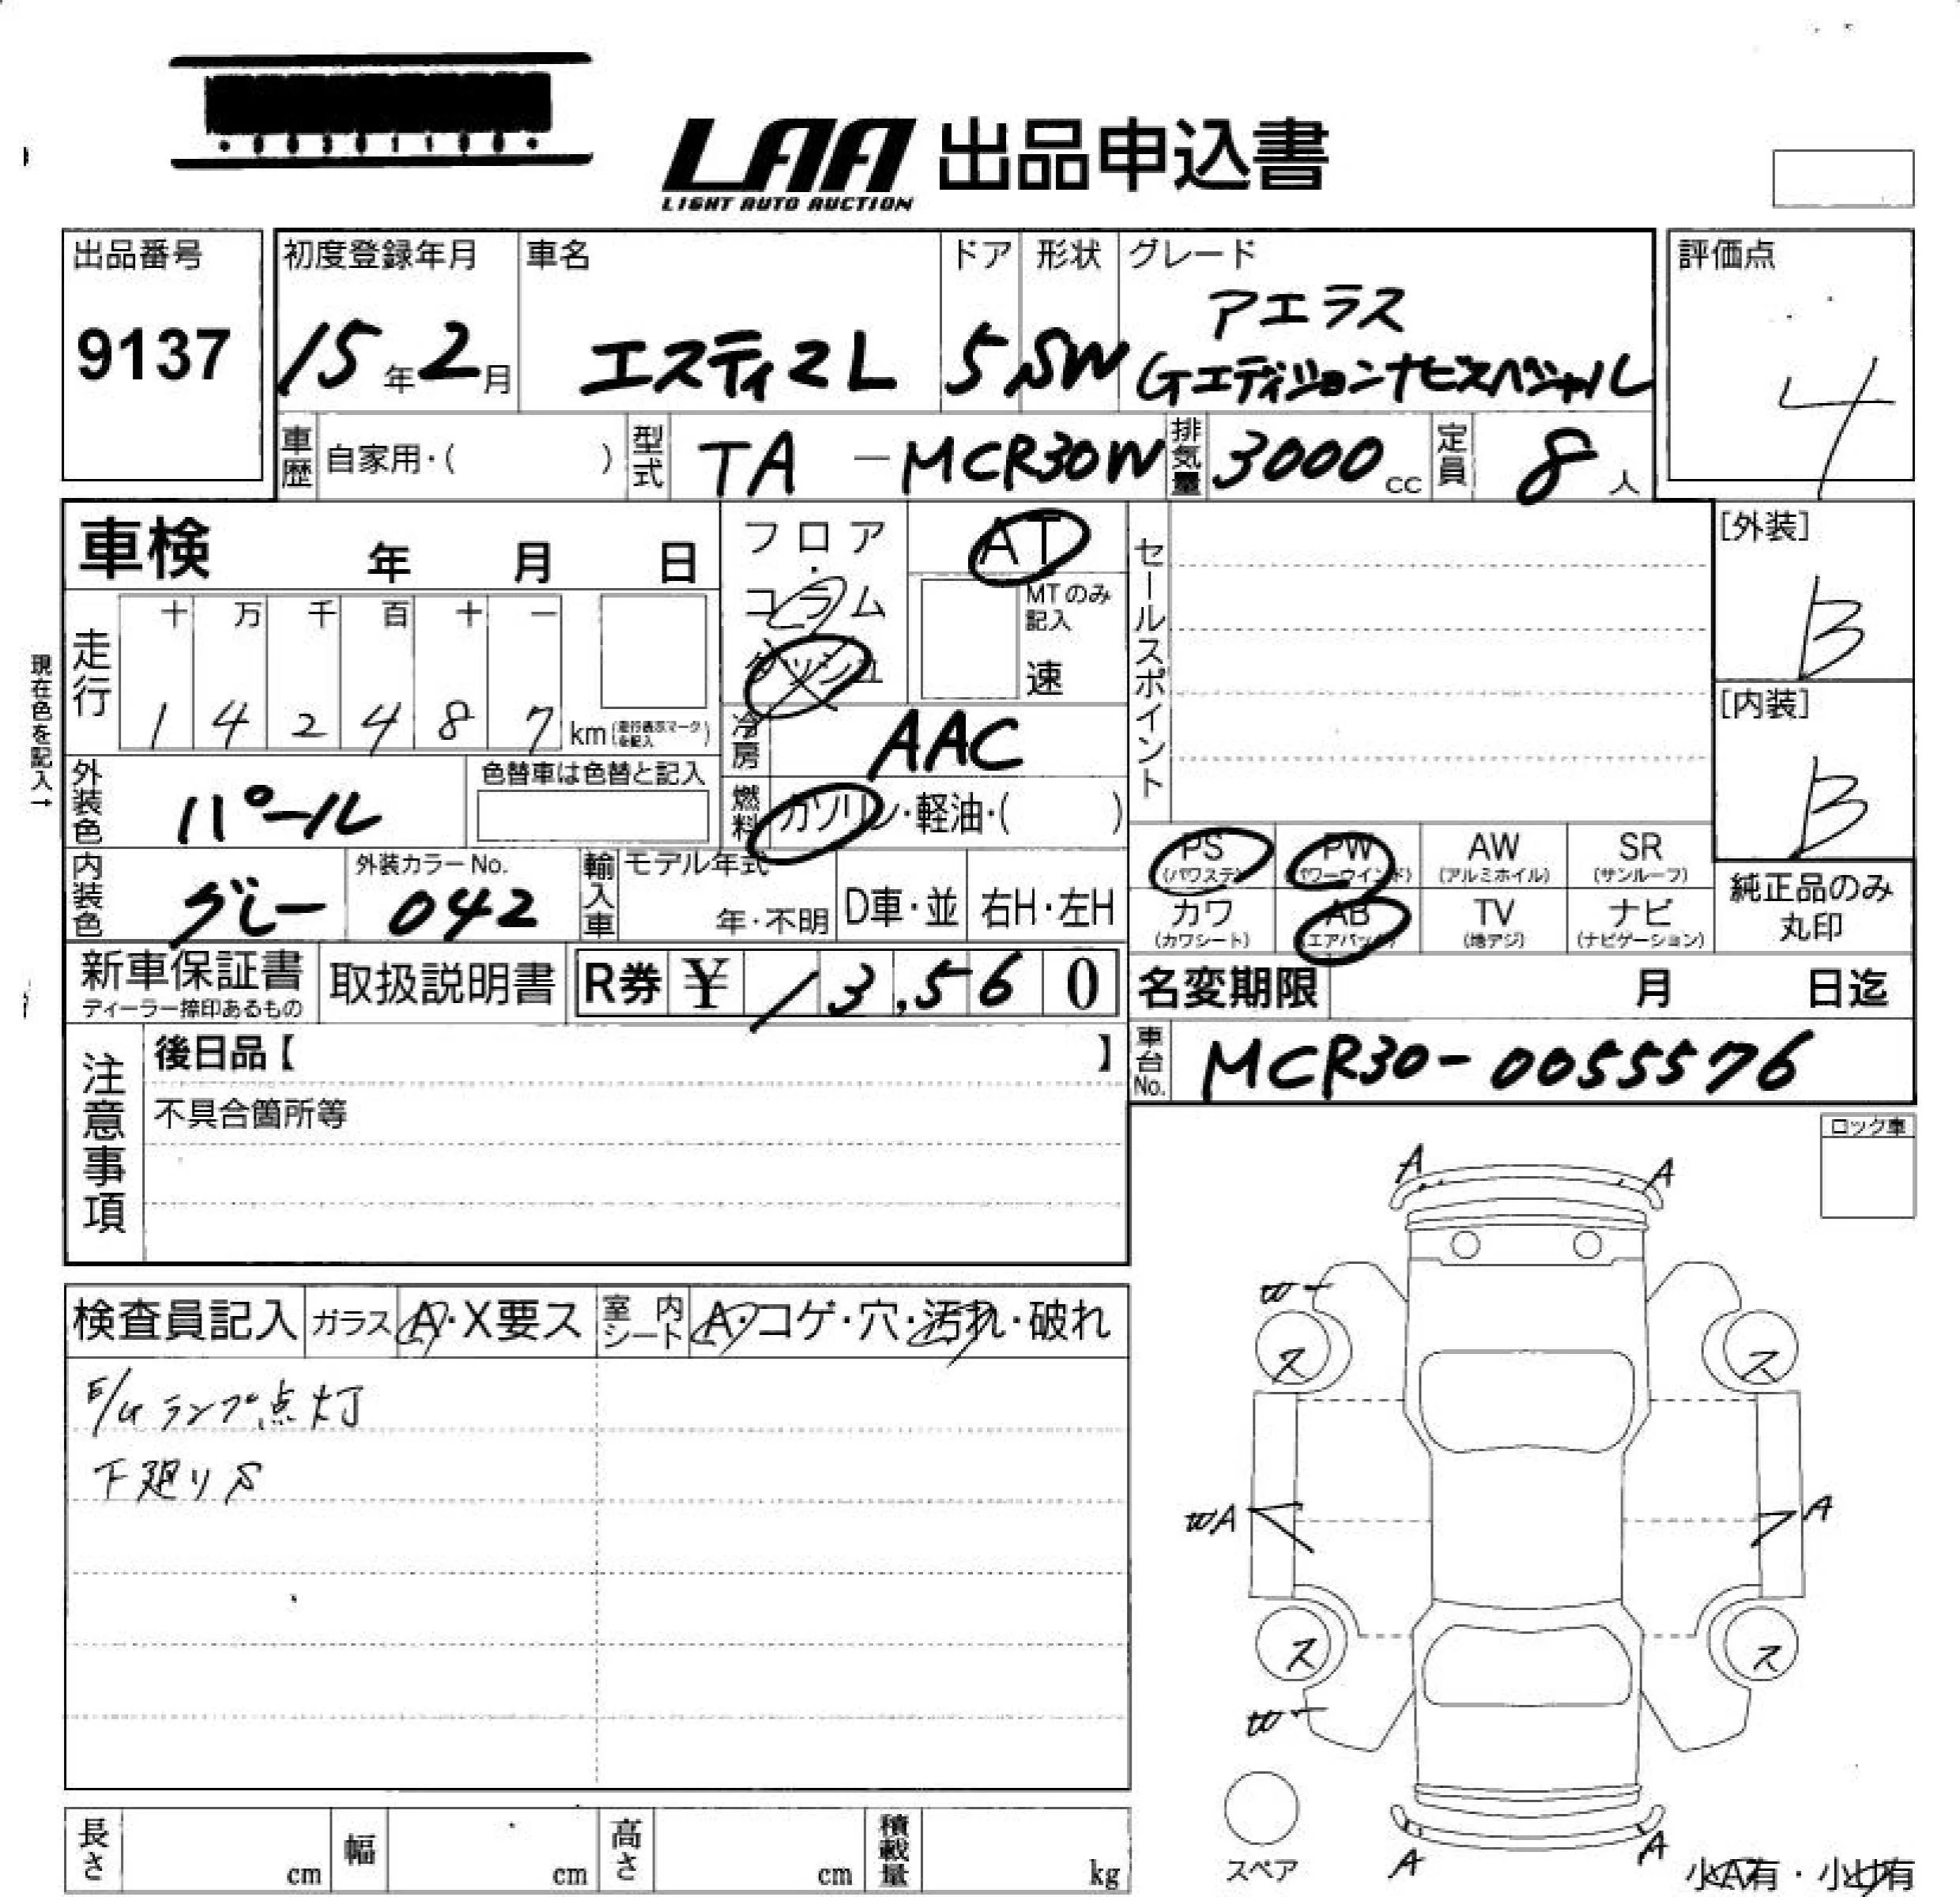 LAA 出品申込書
LIGHT AUTO AUCTION
出品番号
9137
初度登録年月
15年2月
車名
エスティマL
ドア
5
形状
SW
グレード
アエラス
Gエディションナビスペシャル
評価点
4
車歴 自家用・( )
型式 TA - MCR30W
排気量 3000 cc
定員 8 人
車検 年 月 日
フロア
コラム
ダッシュ
AT
MTのみ
記入
速
セールスポイント
[外装]
B
[内装]
B
現在色を記入→
走行
十 万 千 百 十 一
1 4 2 4 8 7 km (走行表示マークを記入)
冷房 AAC
燃料 ガソリン・軽油・( )
外装色 パール
色替車は色替と記入
内装色 グレー
外装カラーNo.
042
輸入車 モデル年式
年・不明
D車・並
右H・左H
PS
(パワステ)
PW
(パワーウインド)
AW
(アルミホイル)
SR
(サンルーフ)
カワ
(カワシート)
AB
(エアバッグ)
TV
(地デジ)
ナビ
(ナビゲーション)
純正品のみ
丸印
新車保証書
ディーラー捺印あるもの
取扱説明書
R券 ¥ 13,560
名変期限 月 日迄
車台No. MCR30-0055576
注意事項
後日品【 】
不具合箇所等
ロック車
検査員記入
ガラス A・X要ス
室内シート A・コゲ・穴・汚れ・破れ
E/Gランプ点灯
下廻りS
A A
W-
ス ス
WA A
ス ス
W-
スペア
A A
小A有・小凹有
長さ cm
幅 cm
高さ cm
積載量 kg